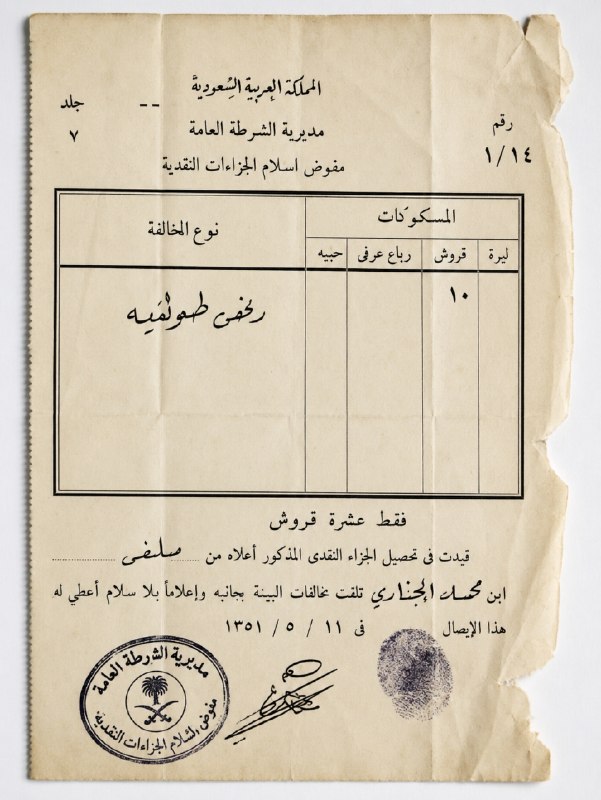 المملكة العربية السعودية
جلد
--
رقم
٧
مديرية الشرطة العامة
١/١٤
مفوض اسلام الجزاءات النقدية
المسكوكات
نوع المخالفة
ليرة
قروش
رباع عرفى
حبيه
١٠
فقط عشرة قروش
قيدت فى تحصيل الجزاء النقدى المذكور أعلاه من
ابن تلقت بخالفات البينة بجانبه وإعلاماً بلا سلام أعطي له
هذا الإيصال فى ١١ / ٥ / ١٣٥١
مديرية الشرطة العامة
مفوض الجزاءات النقدية